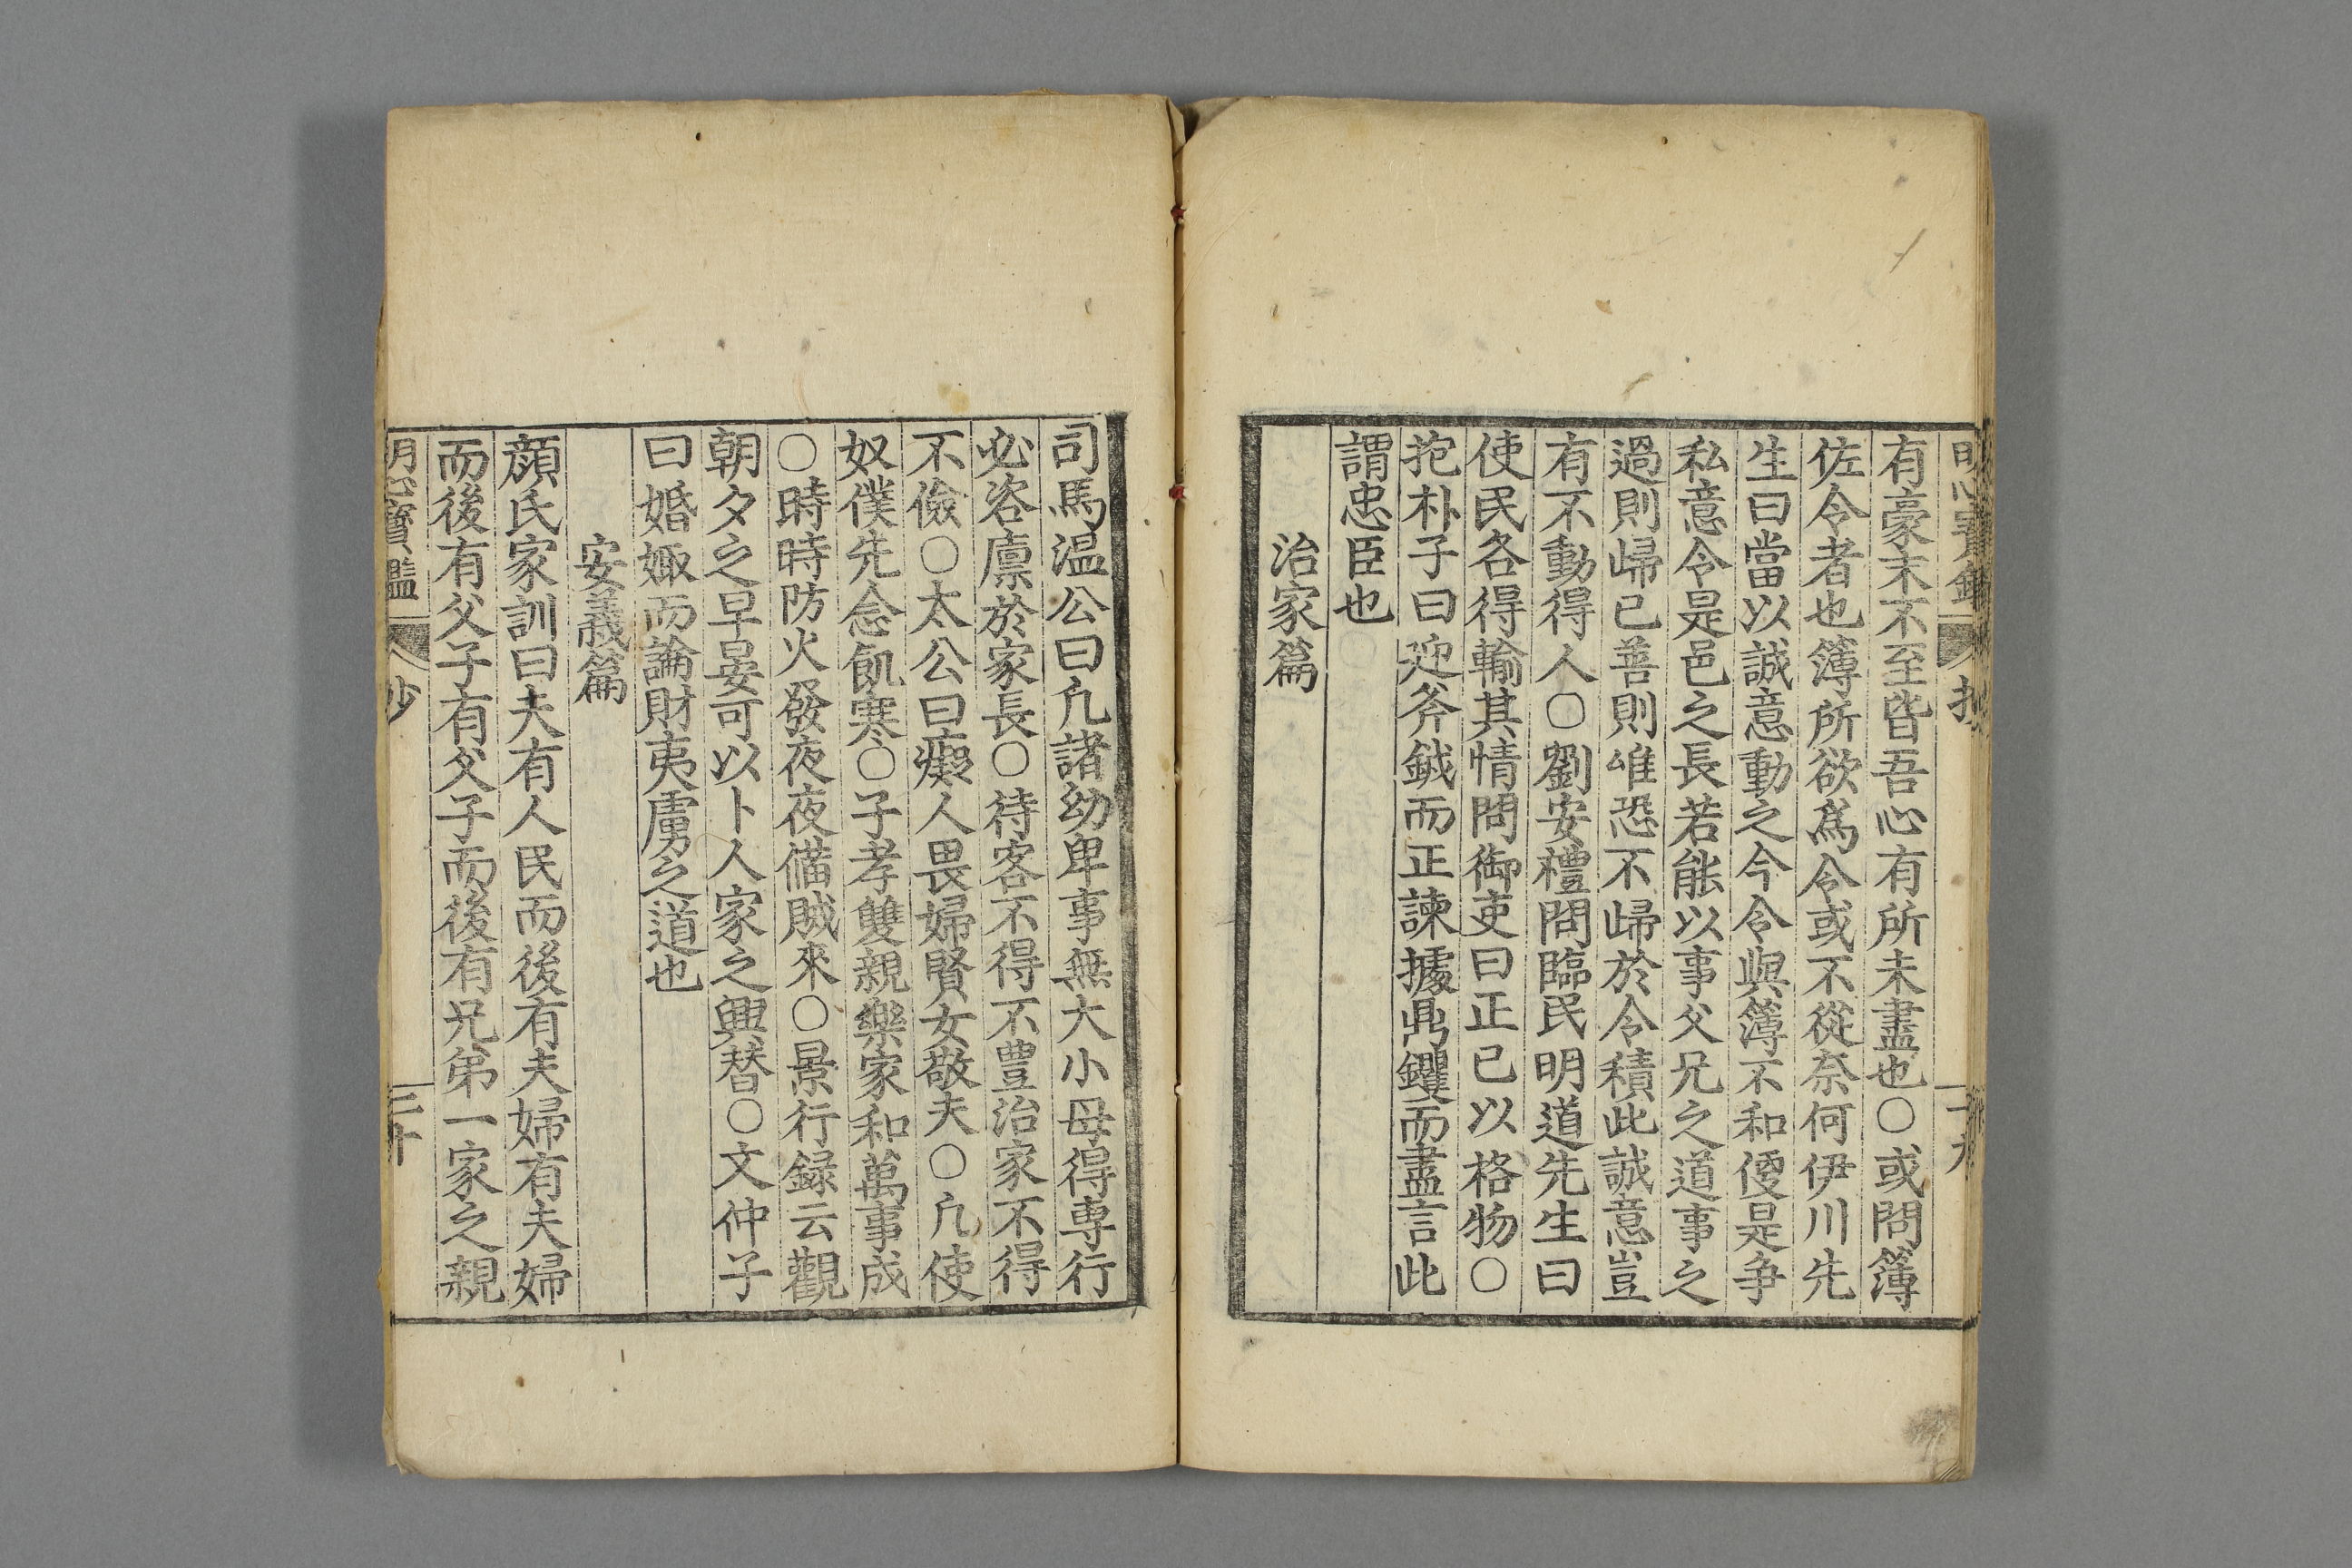 明心寶鑑 抄 十九
有豪末不至皆吾心有所未盡也〇或問簿
佐令者也簿所欲爲令或不從奈何伊川先
生曰當以誠意動之今令與簿不和便是争
私意令是邑之長若能以事父兄之道事之
過則歸已善則唯恐不歸於令積此誠意豈
有不動得人〇劉安禮問臨民明道先生曰
使民各得輸其情問御吏曰正已以格物〇
抱朴子曰迎斧鉞而正諫據鼎鑊而盡言此
謂忠臣也
治家篇
司馬温公曰凢諸幼卑事無大小毋得専行
必咨禀於家長〇待客不得不豊治家不得
不儉〇太公曰癡人畏婦賢女敬夫〇凢使
奴僕先念飢寒〇子孝雙親樂家和萬事成
〇時時防火發夜夜俻賊來〇景行録云觀
朝夕之早晏可以卜人家之興替〇文仲子
曰婚娵而論財夷虜之道也
安義篇
顔氏家訓曰夫有人民而後有夫婦有夫婦
而後有父子有父子而後有兄弟一家之親
明心寶鑑 抄 二十